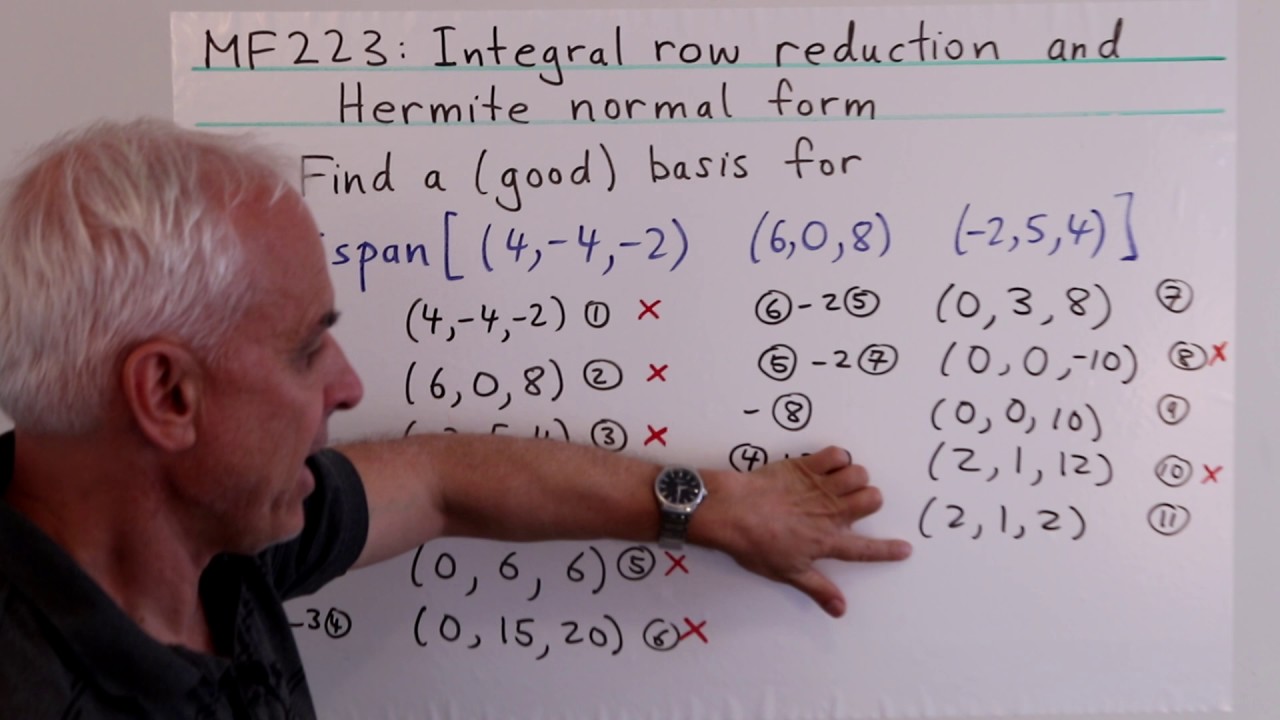 MF223: Integral row reduction and
Hermite normal form
Find a (good) basis for
span[(4,-4,-2) (6,0,8) (-2,5,4)]
(4,-4,-2) ① ×
(6,0,8) ② ×
③ ×
(0,6,6) ⑤ ×
-3④ (0,15,20) ⑥ ×
⑥-2⑤ (0,3,8) ⑦
⑤-2⑦ (0,0,-10) ⑧ ×
-⑧ (0,0,10) ⑨
④ (2,1,12) ⑩ ×
(2,1,2) ⑪